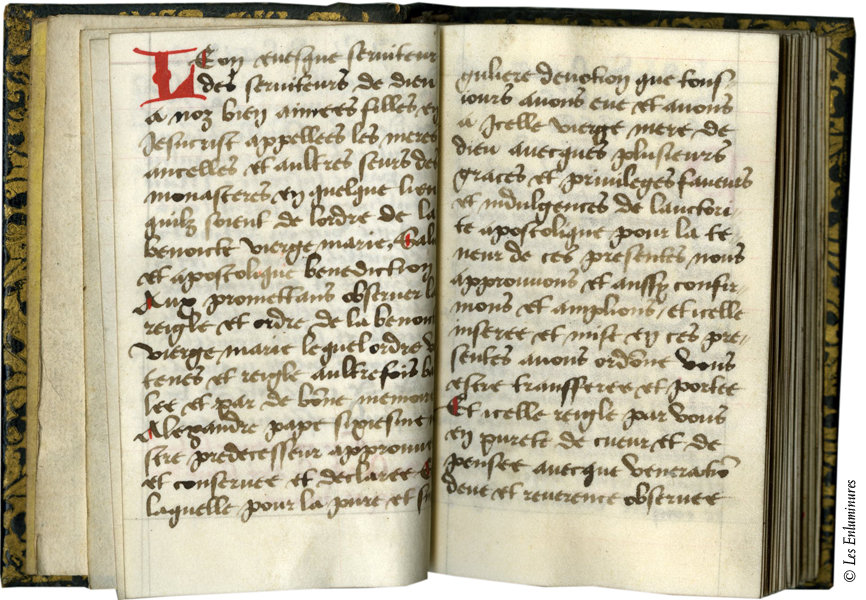 Leon euesque seruiteur
des seruiteurs de dieu
a noz bien aimees filles en
Jesucrist appellees les meres
ancelles et aultres seurs des
monasteres en quelque lieu
quilz soient de lordre de la
benoicte vierge marie, Salu
et apostolique benediction
Aux promettans obseruer la
reigle et ordre de la benoi
vierge marie lequel ordre v
tenes et reigle aultrefois ba
lee et par de bone memoire
Alexandre pape sixiesme
stre predecesseur approuue
et conseruee et declaree
laquelle pour la pure et si
guliere deuotion que tous-
iours auons eue et auons
a Icelle vierge mere de
dieu auecques plusieurs
graces et priuileges faueurs
et indulgences de lauctori-
te apostolique pour la te-
neur de ces presentes nous
approuuons et aussy confir-
mons et amplions, et icelle
inseree et mise en ces pre-
sentes auons ordone vous
estre transferee et portee
Et icelle reigle par vous
en purete de cueur et de
pensee auecque veneratio
deue et reuerence obseruee
© Les Enluminures